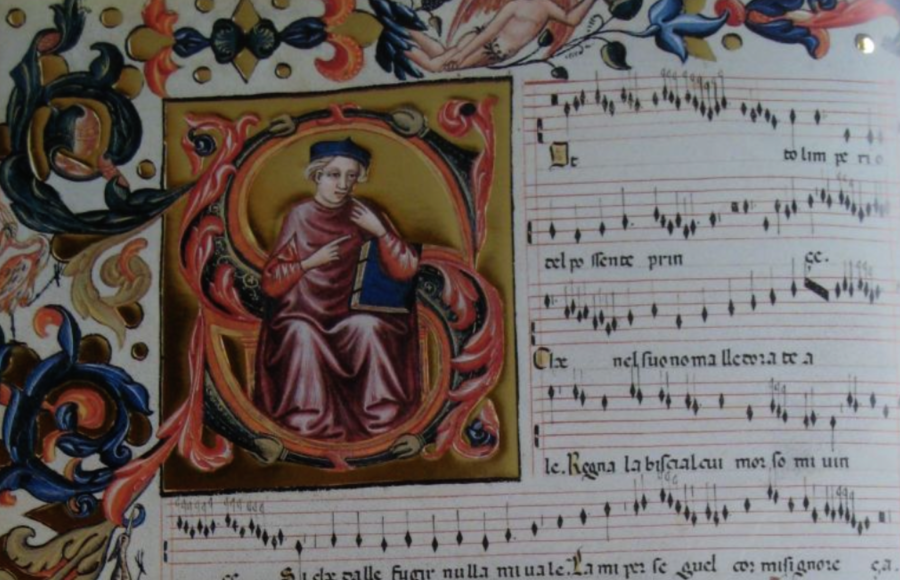 Ot to lim pe ri o
del po ssente prin ce.
Che nel suo no ma lledora te a
le. Regna la biscialcui mor so mi uin
ce. Si che dalle fugir nulla mi uale. La mi per se guel cor misignore